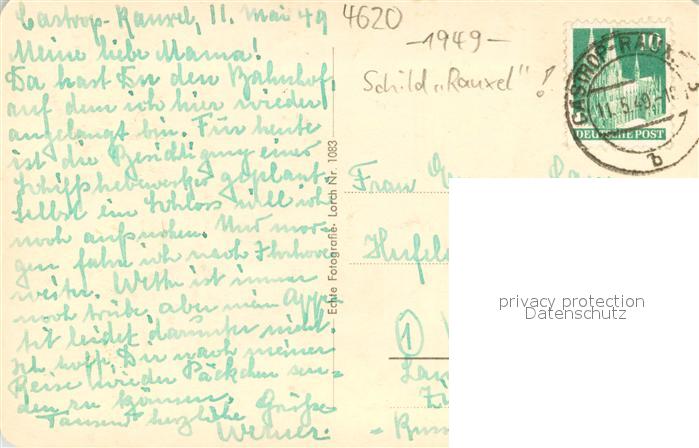 Castrop-Rauxel, 11. Mai 49
Meine liebe Mama!
Da hast Du den Bahnhof,
auf dem ich hier wieder
angelangt bin. Für heute
ist die Besichtigung eines
Schiffshebewerkes geplant.
Selbst ein Schloss will ich
noch aufsuchen. Und mor-
gen fahr ich nach
weiter. Wetter ist immer
noch trübe, aber mein Appe-
tit leidet darunter nicht.
Ich hoff, Dir nach meiner
Reise wieder Päckchen sen-
den zu können.
Tausend herzliche Grüße
Werner.
4620
-1949-
Schild „Rauxel" !
Echte Fotografie Lorch Nr. 1083
10
DEUTSCHE POST
CASTROP-RAUX
11.5.49
b
Frau
Hufel
1
- Russ
privacy protection
Datenschutz